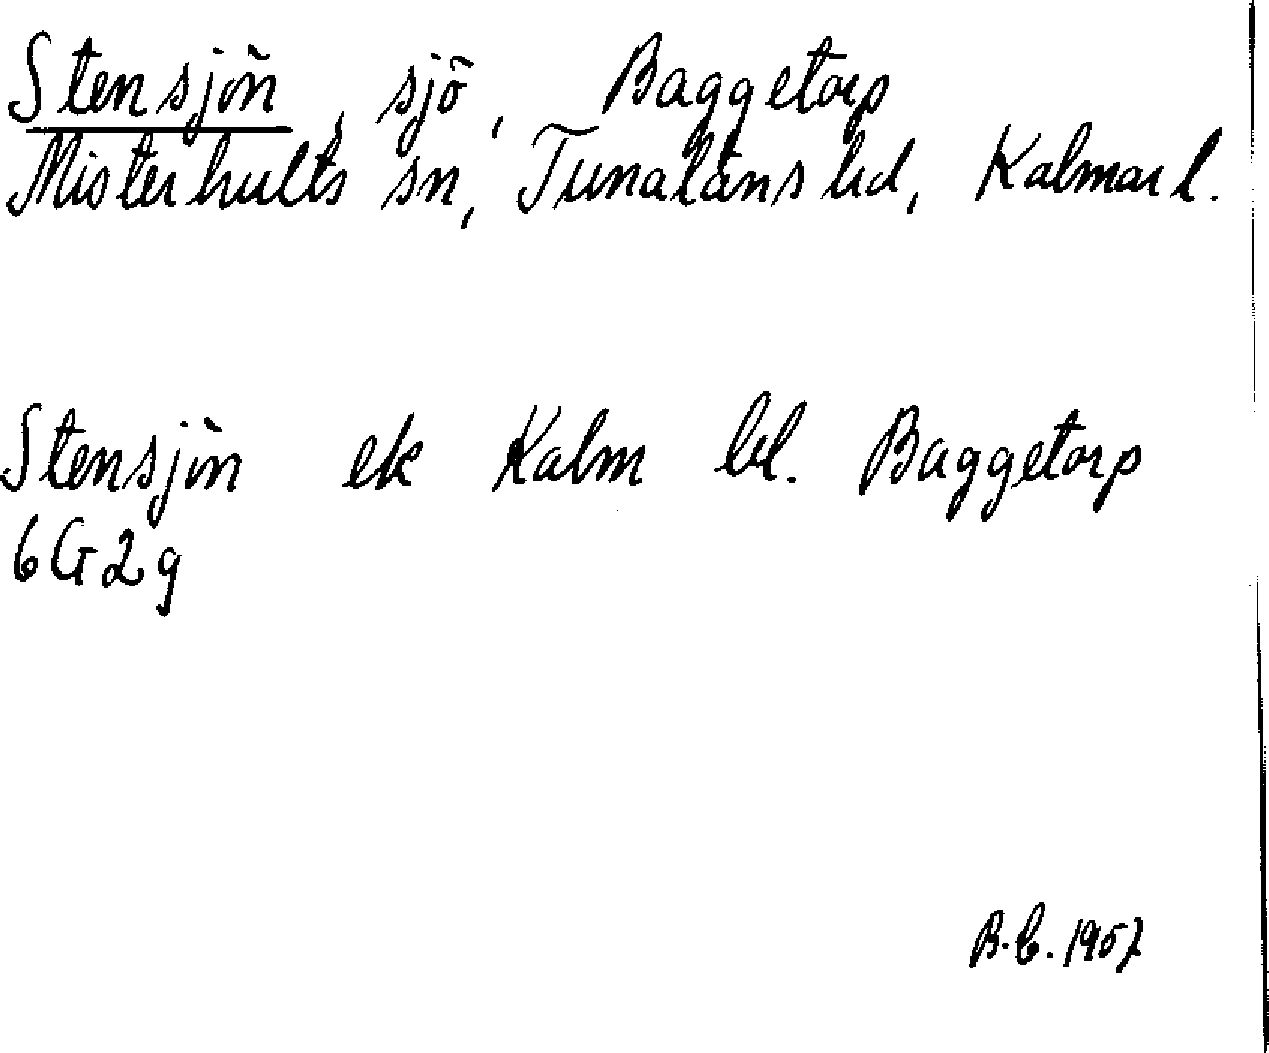 Stensjön, sjö, Baggetorp
Misterhults sn, Tunaläns hd, Kalmar l.
Stensjön ek Kalm bl. Baggetorp
6G2g
B.C. 1957